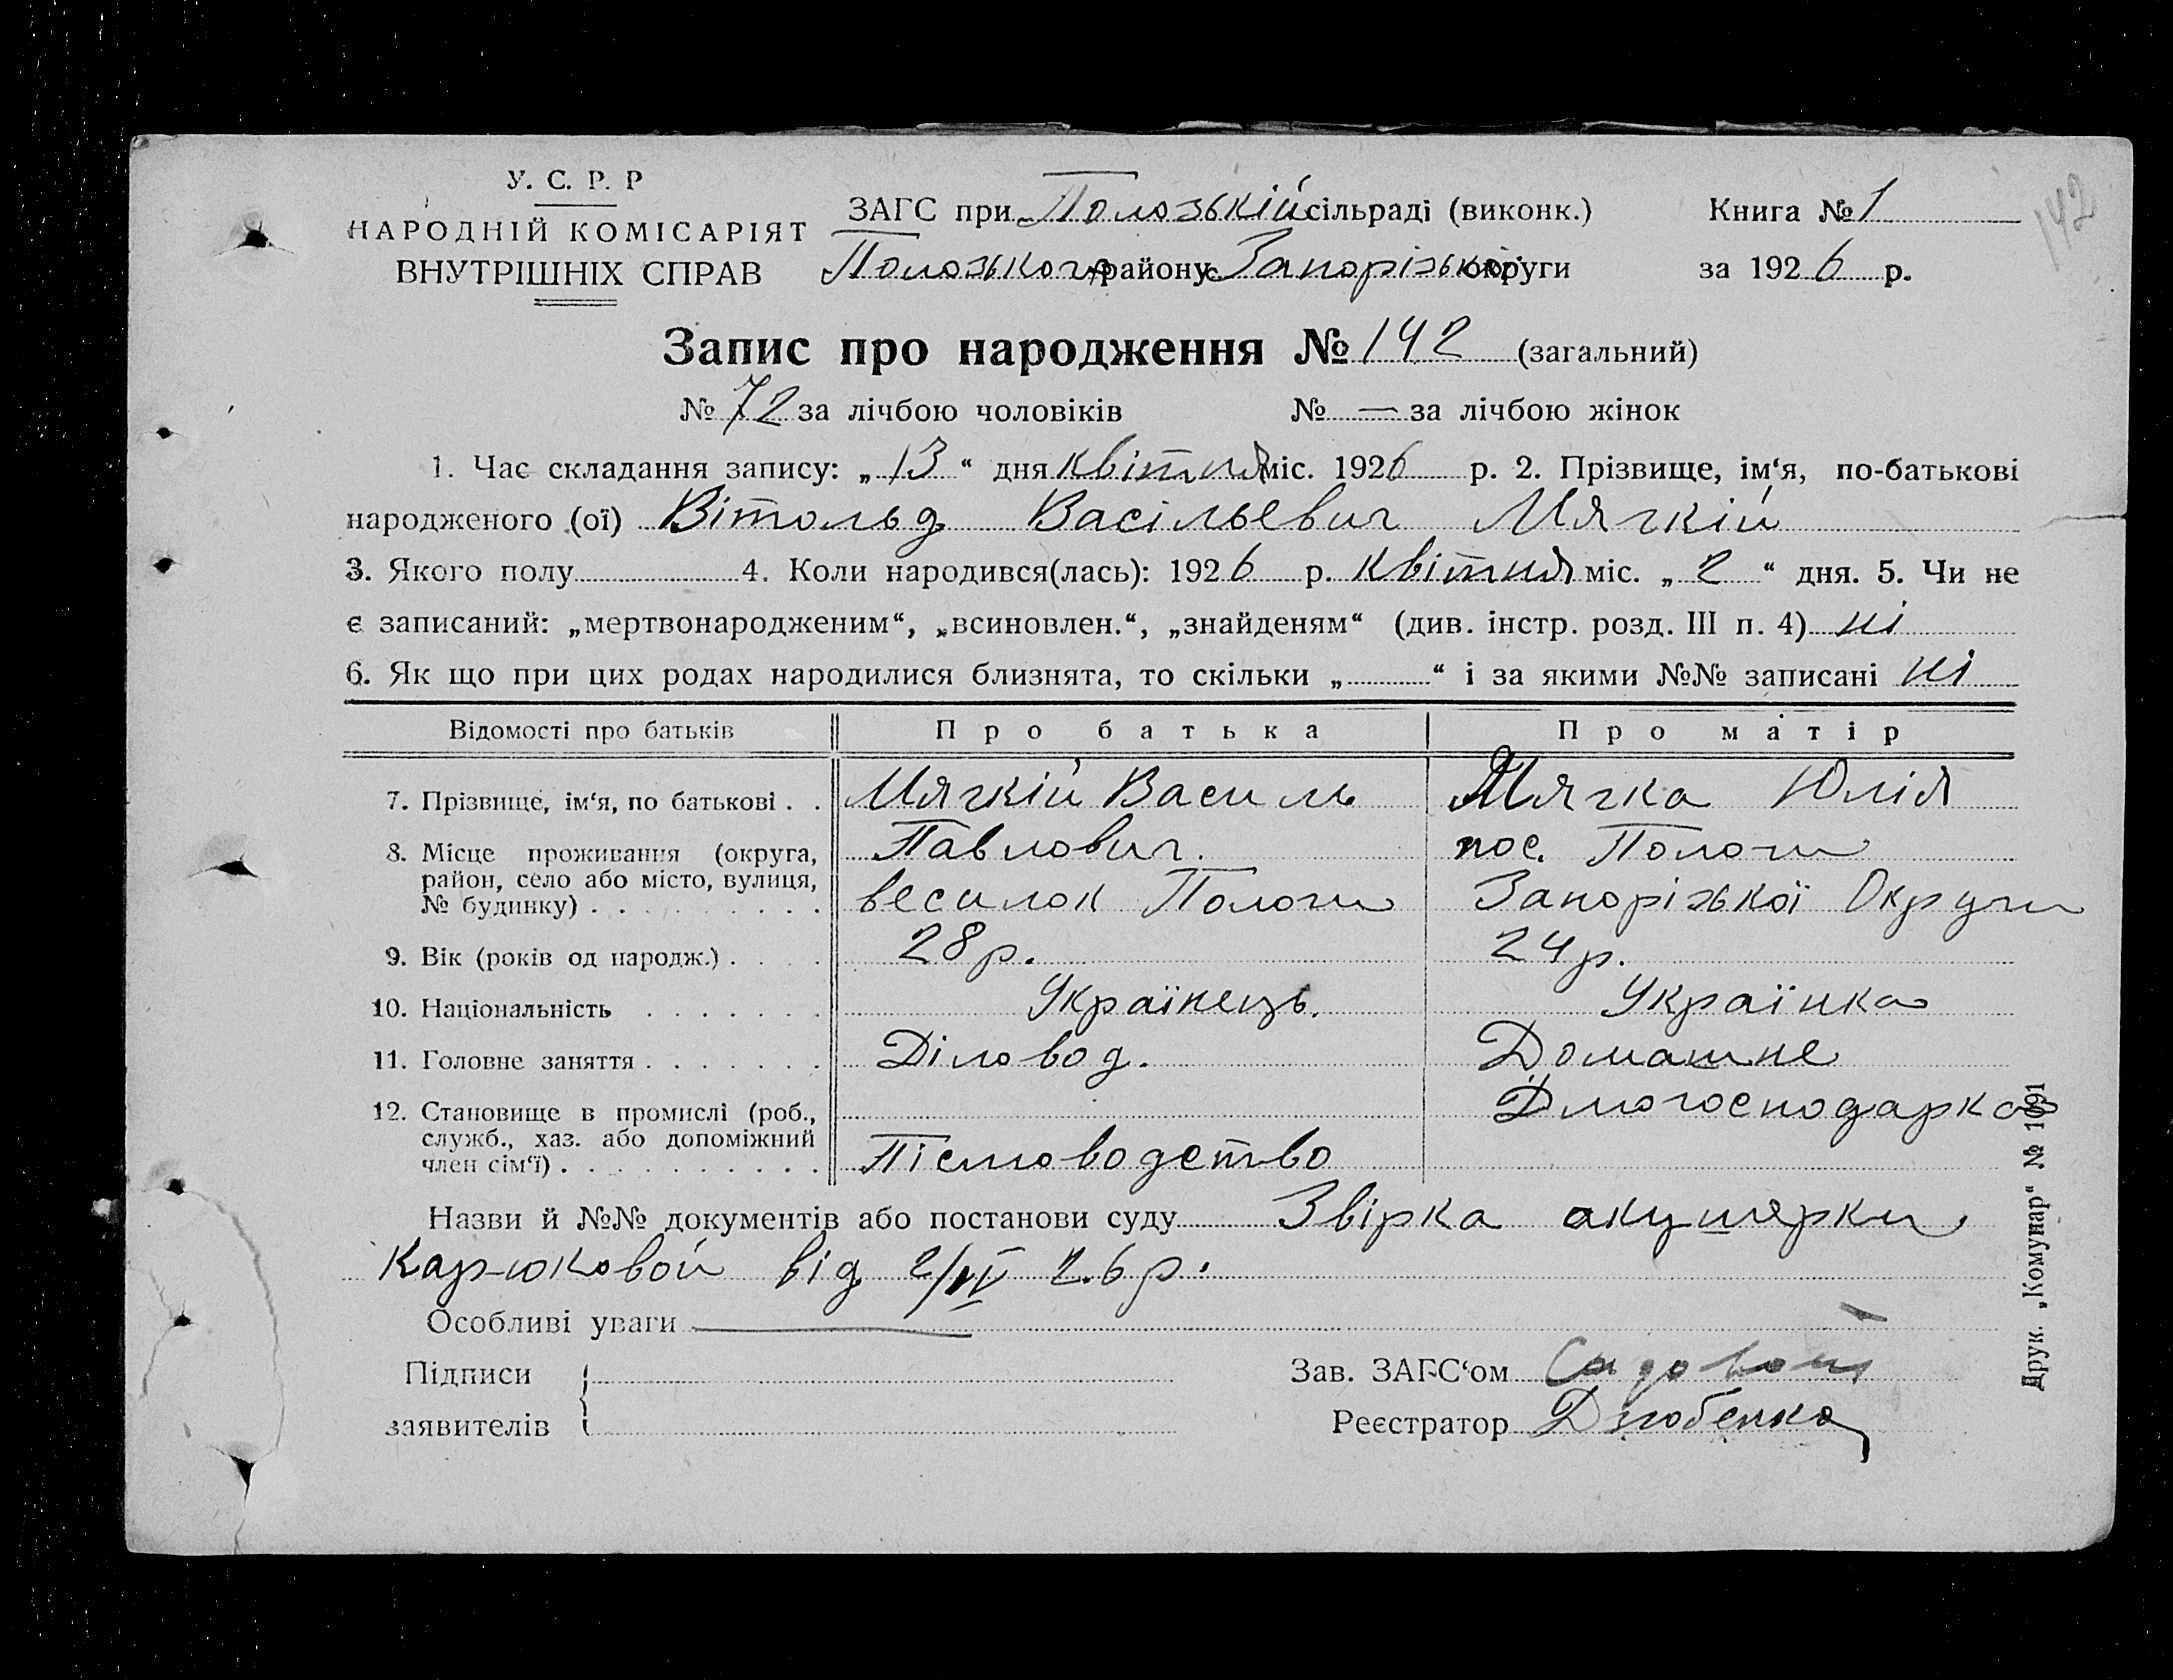 142
У. С. Р. Р
НАРОДНІЙ КОМІСАРІЯТ
ВНУТРІШНІХ СПРАВ
ЗАГС при Положській сільраді (виконк.)
Книга № 1
Положського району Запоріжської округи
за 1926 р.
Запис про народження № 142 (загальний)
№ 72 за лічбою чоловіків № — за лічбою жінок
1. Час складання запису: „13“ дня квітня міс. 1926 р. 2. Прізвище, ім‘я, по-батькові
народженого (ої) Вітольд Васільевич Мягкій
3. Якого полу 4. Коли народився(лась): 1926 р. квітня міс. „2“ дня. 5. Чи не
є записаний: „мертвонародженим“, „всиновлен.“, „знайденям“ (див. інстр. розд. III п. 4) ні
6. Як що при цих родах народилися близнята, то скільки „ “ і за якими №№ записані ні
Відомості про батьків Про батька Про матір
7. Прізвище, ім‘я, по батькові . . Мягкій Василь Мягка Юлія
8. Місце проживання (округа, Павлович. пос. Пологи
район, село або місто, вулиця,
№ будинку) . . . . . . . . . веселок Пологи Запоріжкої Округи
9. Вік (років од народж.) . . . . 28 р. 24 р.
10. Національність . . . . . . . Українець. Українка
11. Головне заняття . . . . . . . Діловод. Домашнє
12. Становище в промислі (роб.,
служб., хаз. або допоміжний
член сім‘ї) . . . . . . . . . . Пісмоводство
Назви й №№ документів або постанови суду Звірка акушерки
Карюковой від 2/IV 26 р.
Особливі уваги —
Підписи
заявителів
Зав. ЗАГС‘ом Садовий
Реєстратор Дзюбенко
Друк. „Комунар“ № 1091